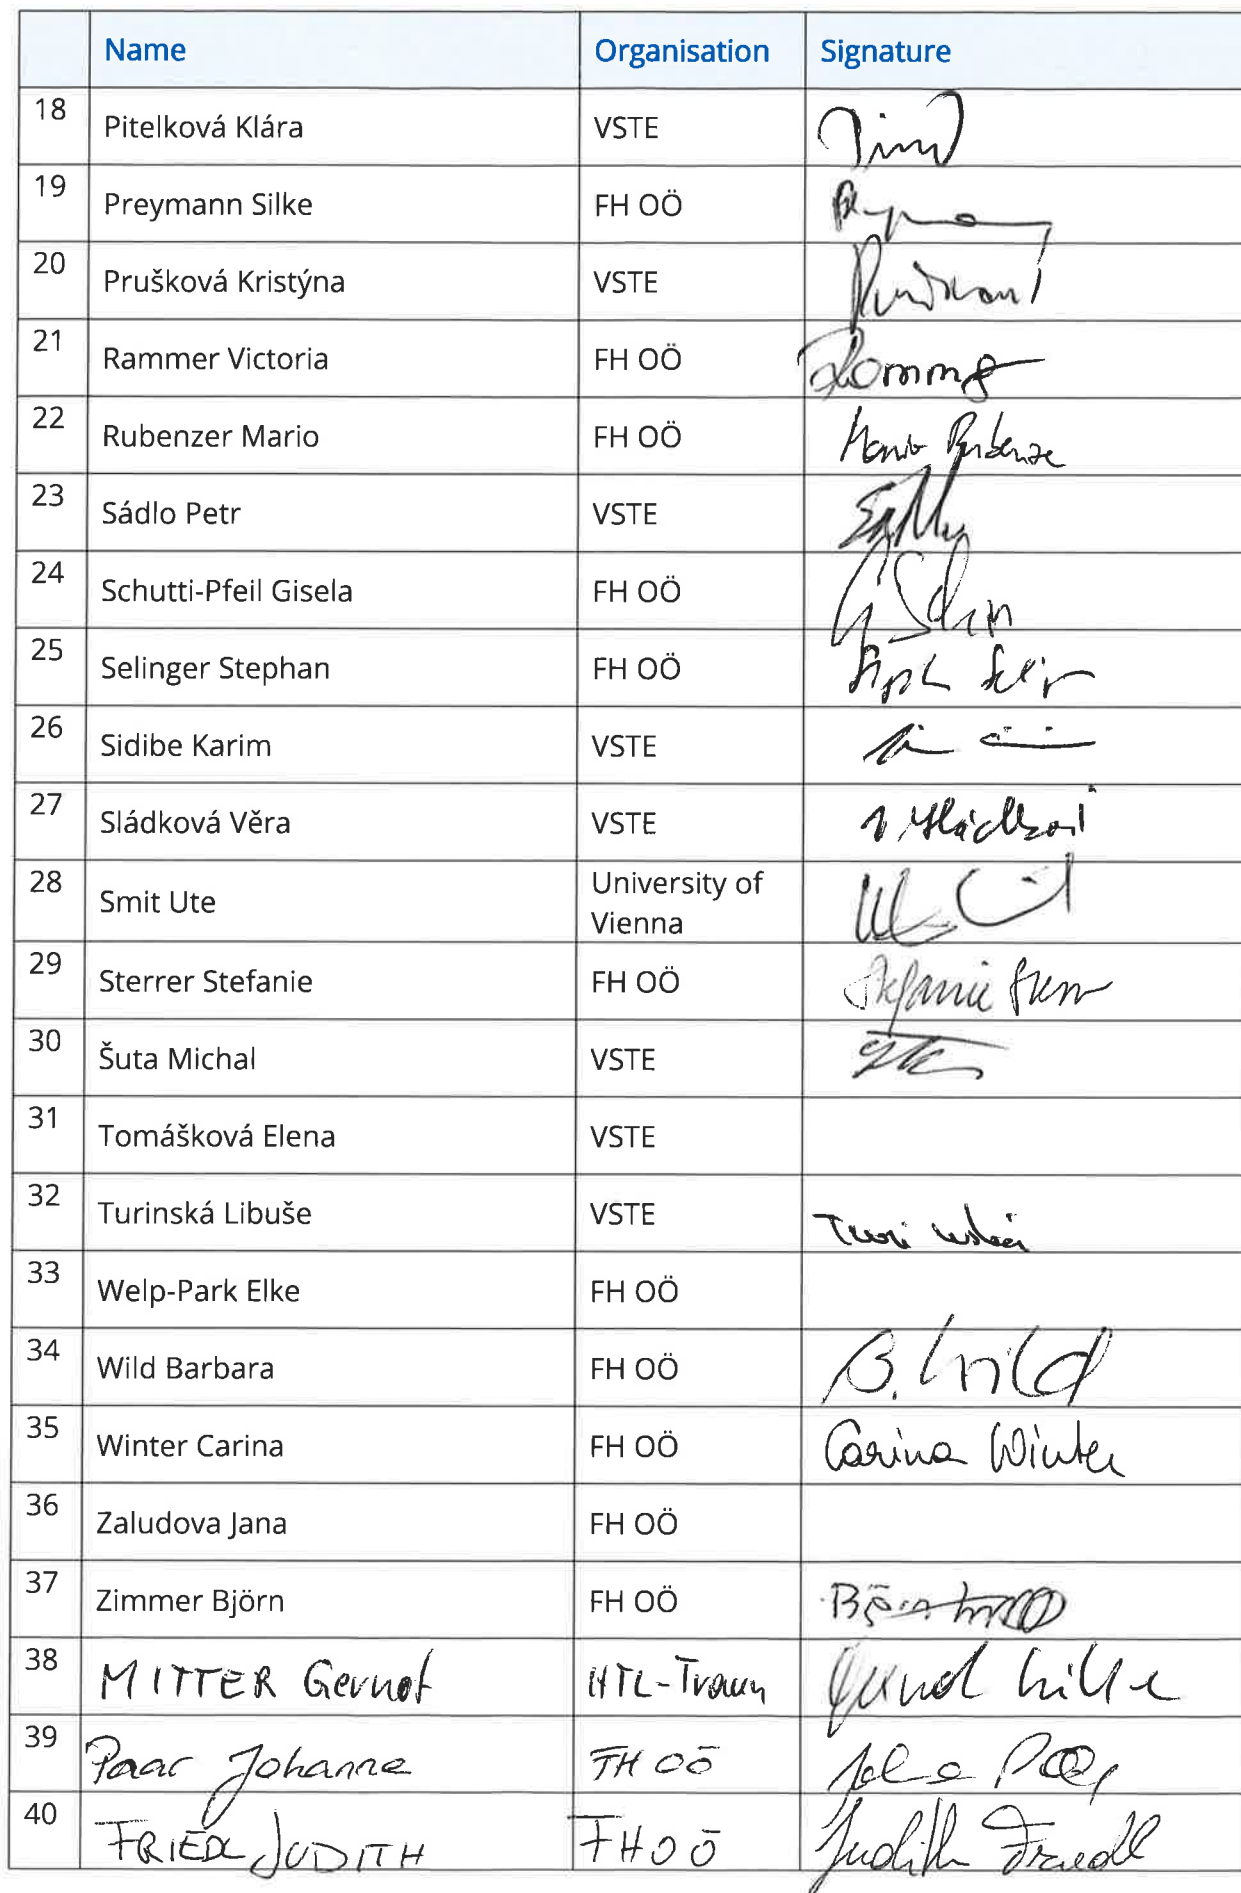 Name Organisation Signature
18 Pitelková Klára VSTE
19 Preymann Silke FH OÖ
20 Prušková Kristýna VSTE
21 Rammer Victoria FH OÖ
22 Rubenzer Mario FH OÖ Mario Rubenzer
23 Sádlo Petr VSTE
24 Schutti-Pfeil Gisela FH OÖ
25 Selinger Stephan FH OÖ
26 Sidibe Karim VSTE
27 Sládková Věra VSTE
28 Smit Ute University of
Vienna
29 Sterrer Stefanie FH OÖ Stefanie
30 Šuta Michal VSTE
31 Tomášková Elena VSTE
32 Turinská Libuše VSTE
33 Welp-Park Elke FH OÖ
34 Wild Barbara FH OÖ B. Wild
35 Winter Carina FH OÖ Carina Winter
36 Zaludova Jana FH OÖ
37 Zimmer Björn FH OÖ Björn
38 MITTER Gernot HTL-Traun
39 Paar Johanna FH OÖ
40 FRIEDL JUDITH FH OÖ Judith Friedl